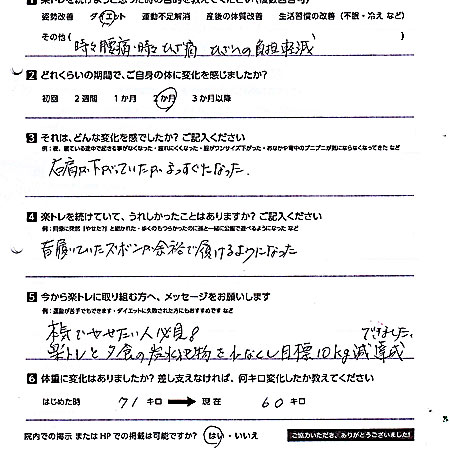 1 楽トレを続けようと思った時の目的を教えてください(複数回答可)
姿勢改善 ダイエット 運動不足解消 産後の体質改善 生活習慣の改善(不眠・冷えなど)
その他( 時々腰痛・時々ひざ痛 ひざへの負担軽減 )
2 どれくらいの期間で、ご自身の体に変化を感じましたか?
初回 2週間 1か月 2か月 3か月以降
3 それは、どんな変化を感でしたか? ご記入ください
右肩が下がっていたがまっすぐになった。
4 楽トレを続けていて、うれしかったことはありますか? ご記入ください
昔履いていたズボンが余裕で履けるようになった
5 今から楽トレに取り組む方へ、メッセージをお願いします
例:運動が苦手でもできます・ダイエットに失敗された方にもおすすめです など
本気でやせたい人必見! できました。
楽トレと夕食の炭水化物をなくし目標10kg減達成
6 体重に変化はありましたか? 差し支えなければ、何キロ変化したか教えてください
はじめた時 71 キロ ➡ 現在 60 キロ
院内での掲示 または HP での掲載は可能ですか? はい・いいえ ご協力いただき、ありがとうございました!